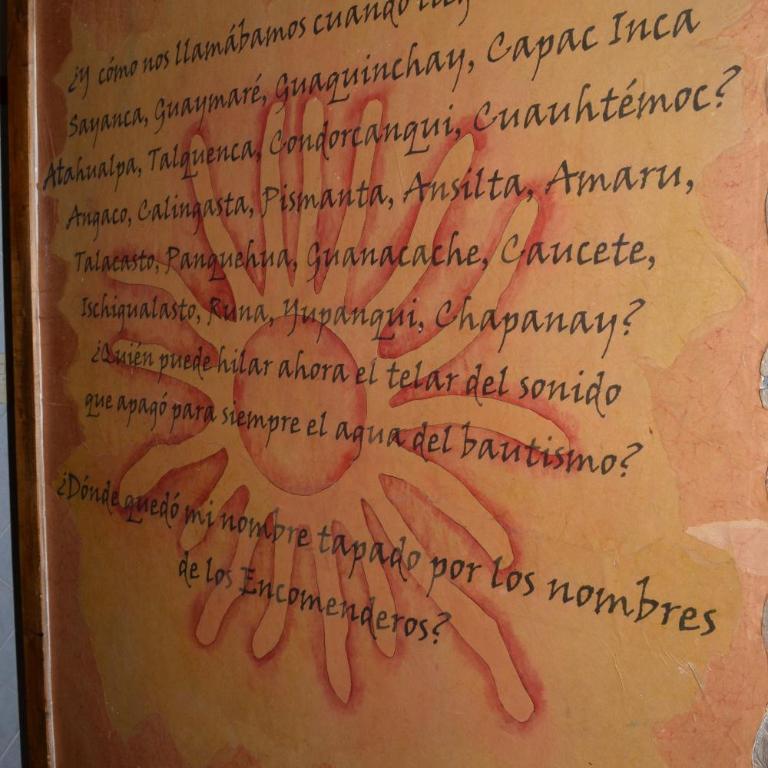 ¿y cómo nos llamábamos cuando
Sayanca, Guaymaré, Guaquinchay, Capac Inca
Atahualpa, Talquenca, Condorcanqui, Cuauhtémoc?
Angaco, Calingasta, Pismanta, Ansilta, Amaru,
Talacasto, Panquehua, Guanacache, Caucete,
Ischigualasto, Runa, Yupanqui, Chapanay?
¿Quién puede hilar ahora el telar del sonido
que apagó para siempre el agua del bautismo?
¿Dónde quedó mi nombre tapado por los nombres
de los Encomenderos?